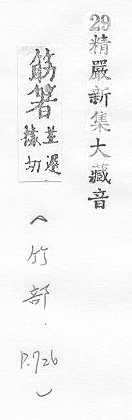 29精嚴新集大藏音
筯箸
並遲
據切
(竹部. P.726)